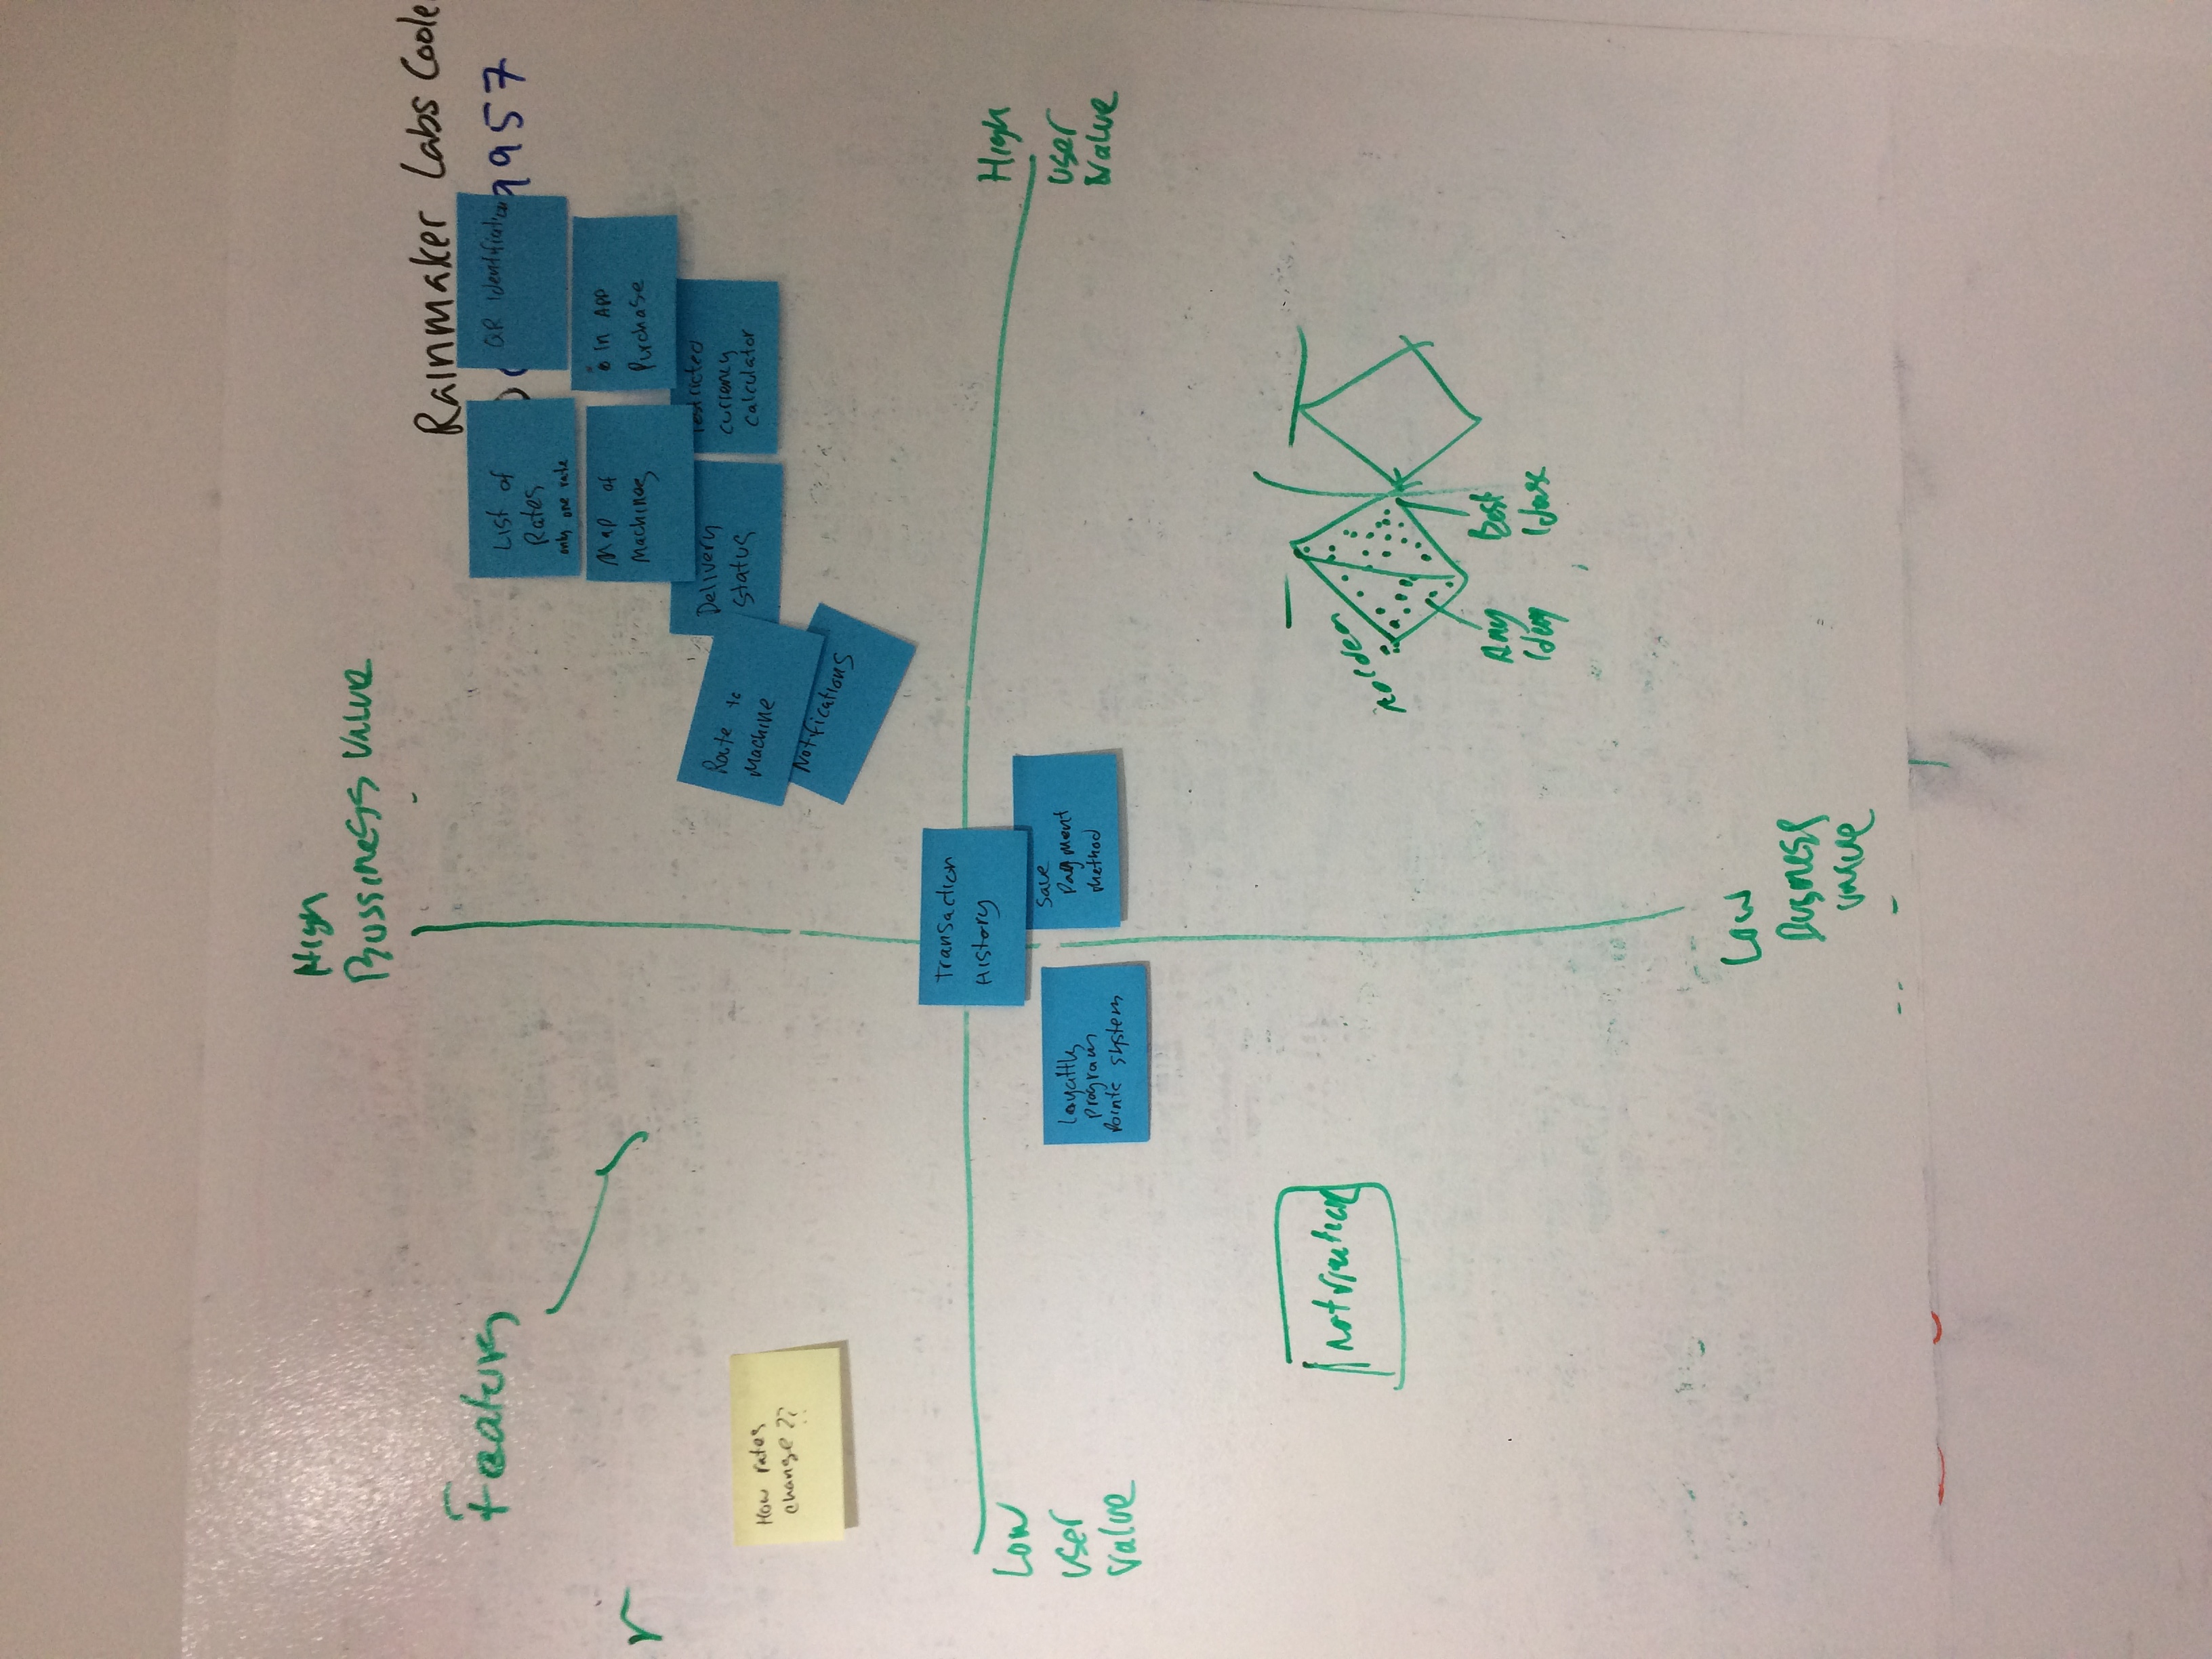 High
Bussiness Value
Rainmaker Labs Code
Features
List of
Rates
only one rate
QR Identification
9957
Map of
Machines
In App
Purchase
r
Route to
Machine
Delivery
Status
restricted
currency
calculator
How rates
change??
Notifications
Transaction
History
Low
User
Value
High
User
Value
Loyaltly
program
Points system
Save
Payment
Method
Notification
No Idea
Any
Idea
Best
Low
Business
value